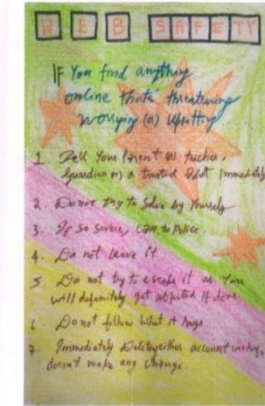 WEB SAFETY
IF You find anything
online that's threatening
worrying (or) upsetting
1. Tell your parent or teacher,
guardian or a trusted Adult immediately
2. Do not try to solve by yourself
3. If so severe, call to Police
4. Do not leave it
5. Do not try to escape it as you
will definitely get affected if done
6. Do not follow what it says
7. Immediately
doesn't make any change.